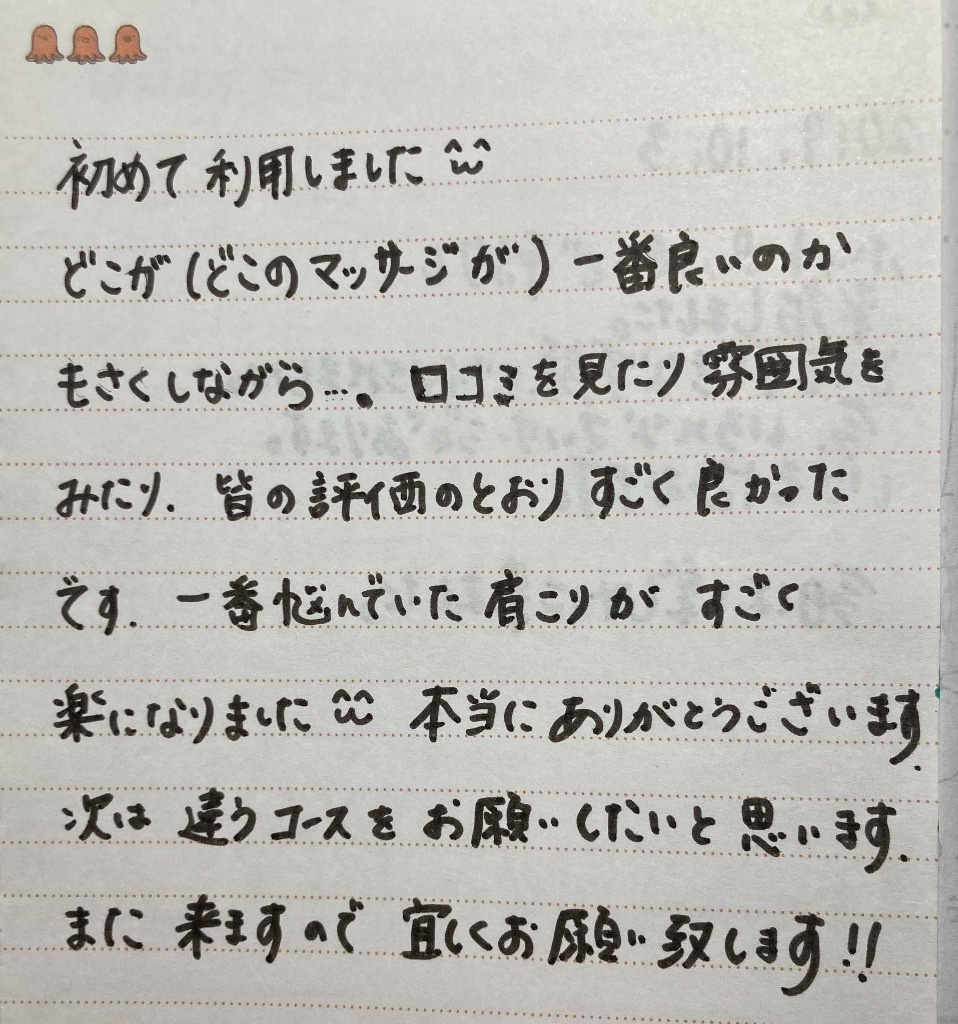 初めて利用しました^^
どこが(どこのマッサージが)一番良いのか
もさくしながら…。口コミを見たり雰囲気を
みたり. 皆の評価のとおりすごく良かった
です. 一番悩んでいた肩こりが すごく
楽になりました^^ 本当にありがとうございます.
次は 違うコースを お願いしたいと 思います.
また 来ますので 宜しくお願い致します!!